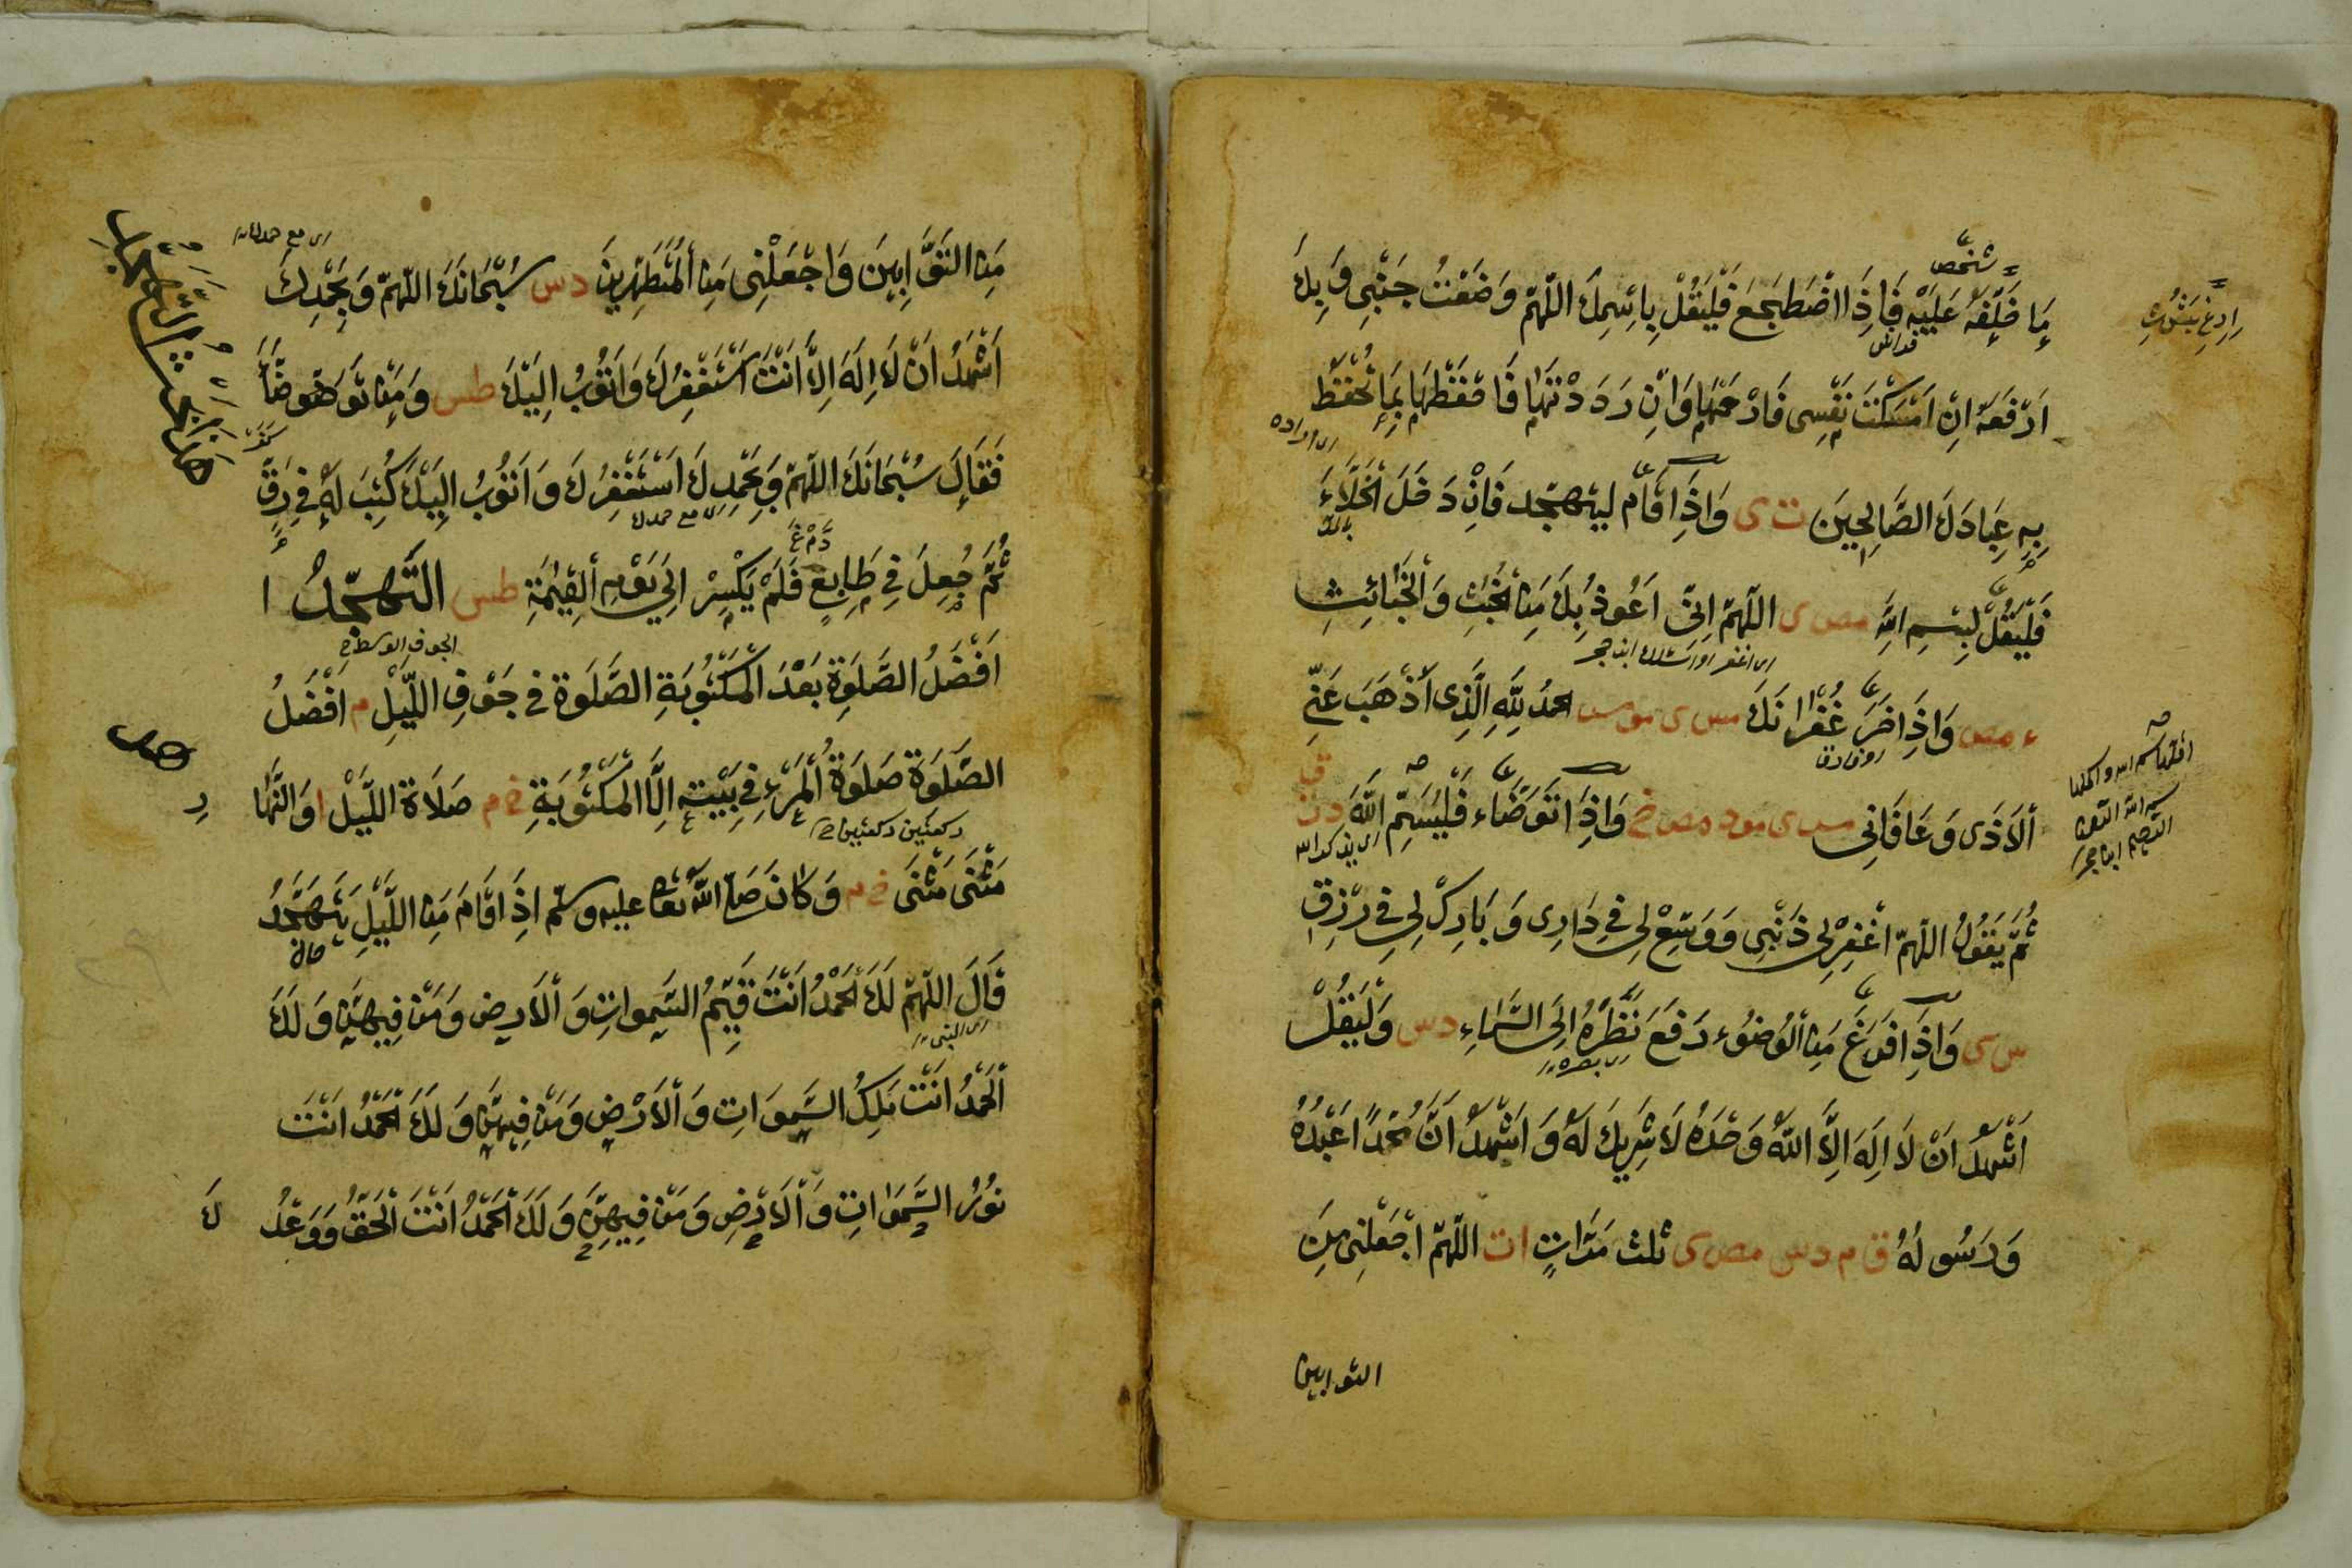 مَا خَلَفَهُ عَلَيْهِ فَاِذَا اضْطَجَعَ فَلْيَقُلْ بِاسْمِكَ اللّٰهُمَّ وَضَعْتُ جَنْبِي وَبِكَ
اَرْفَعُهُ اِنْ اَمْسَكْتَ نَفْسِي فَارْحَمْهَا وَاِنْ رَدَدْتَهَا فَاحْفَظْهَا بِمَا تَحْفَظُ
بِهِ عِبَادَكَ الصَّالِحِينَ ت ى وَاِذَا قَامَ ليتهجد فَاِنْ دَخَلَ الْخَلَاءَ
فَلْيَقُلْ بِسْمِ اللهِ مص ى اللّٰهُمَّ اِنِّي اَعُوذُ بِكَ مِنَ الْخُبُثِ وَالْخَبَائِثِ
ع مص وَاِذَا خَرَجَ غُفْرَانَكَ مس ى مو مس الحمدُ لِلّٰهِ الَّذِي اَذْهَبَ عَنِّي
الْاَذٰى وَعَافَانِي س ى مو مص وَاِذَا تَوَضَّاءَ فَلْيُسَمِّ اللهَ د ت ق
ثُمَّ يَقُولُ اللّٰهُمَّ اغْفِرْ لِي ذَنْبِي وَوَسِّعْ لِي فِي دَارِي وَبَارِكْ لِي فِي رِزْقِي
س ى وَاِذَا فَرَغَ مِنَ الْوُضُوءِ رَفَعَ نَظْرَهُ اِلَى السَّمَاءِ د س وَلْيَقُلْ
اَشْهَدُ اَنْ لَا اِلٰهَ اِلَّا اللهُ وَحْدَهُ لَا شَرِيكَ لَهُ وَاَشْهَدُ اَنَّ مُحَمَّدًا عَبْدُهُ
وَرَسُولُهُ ق م د س مص ى ثلث مَرَّاتٍ ا ت اللّٰهُمَّ اجْعَلْنِي مِنَ
التوابين
مِنَ التَّوَّابِينَ وَاجْعَلْنِي مِنَ الْمُتَطَهِّرِينَ د س سُبْحَانَكَ اللّٰهُمَّ وَبِحَمْدِكَ
اَشْهَدُ اَنْ لَا اِلٰهَ اِلَّا اَنْتَ اَسْتَغْفِرُكَ وَاَتُوبُ اِلَيْكَ طس وَمَنْ تَوَضَّاَ
فَقَالَ سُبْحَانَكَ اللّٰهُمَّ وَبِحَمْدِكَ اَسْتَغْفِرُكَ وَاَتُوبُ اِلَيْكَ كُتِبَ لَهُ فِي رَقٍّ
ثُمَّ جُعِلَ فِي طَابِعٍ فَلَمْ يُكْسَرْ اِلٰى يَوْمِ الْقِيٰمَةِ طس التَّهَجُّدُ
اَفْضَلُ الصَّلٰوةِ بَعْدَ الْمَكْتُوبَةِ الصَّلٰوةُ فِي جَوْفِ اللَّيْلِ م اَفْضَلُ
الصَّلٰوةِ صَلٰوةُ الْمَرْءِ فِي بَيْتِهِ اِلَّا الْمَكْتُوبَةِ خ م صَلَاةُ اللَّيْلِ ا وَالنَّهَا
ر
ركعتين ركعتين
مَثْنٰى مَثْنٰى خ م وَكَانَ صَلَّى اللهُ تعالى عليه وسلم اِذَا قَامَ مِنَ اللَّيْلِ يَتَهَجَّدُ
قَالَ اللّٰهُمَّ لَكَ الْحَمْدُ اَنْتَ قَيِّمُ السَّمٰوَاتِ وَالْاَرْضِ وَمَنْ فِيهِنَّ وَلَكَ
الْحَمْدُ اَنْتَ مَلِكُ السَّمٰوَاتِ وَالْاَرْضِ وَمَنْ فِيهِنَّ وَلَكَ الْحَمْدُ اَنْتَ
نُورُ السَّمٰوَاتِ وَالْاَرْضِ وَمَنْ فِيهِنَّ وَلَكَ الْحَمْدُ اَنْتَ الْحَقُّ وَوَعْدُ
كَ